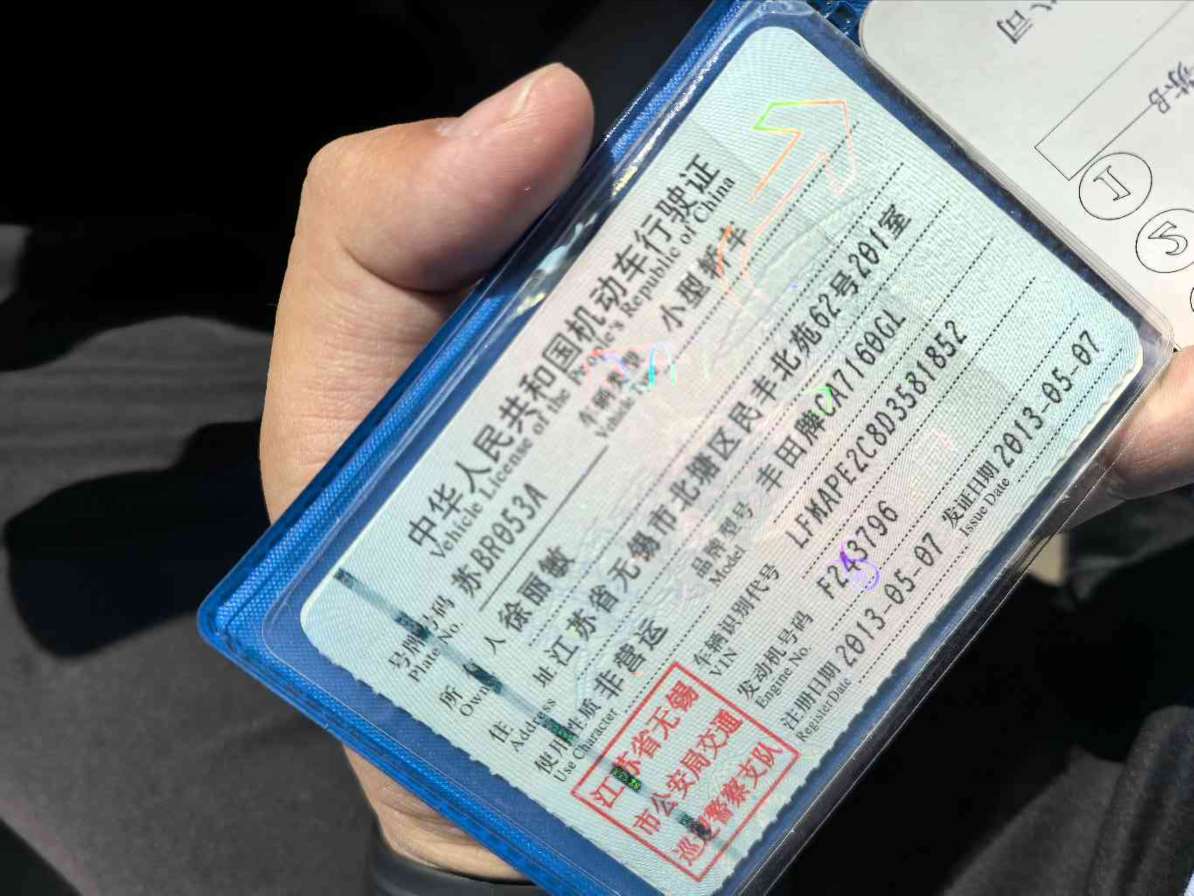 中华人民共和国机动车行驶证
Vehicle License of the People's Republic of China
号牌号码 苏BR053A 车辆类型 小型轿车
Plate No. Vehicle Type
所有人 徐丽敏
Owner
住址 江苏省无锡市北塘区民丰北苑62号201室
Address
使用性质 非营运 品牌型号 丰田牌CA7160GL
Use Character Model
江苏省无锡
市公安局交通
巡逻警察支队
车辆识别代号 LFMAPE2C8D3581852
VIN
发动机号码 F243796
Engine No.
注册日期 2013-05-07 发证日期 2013-05-07
Register Date Issue Date
司
苏B